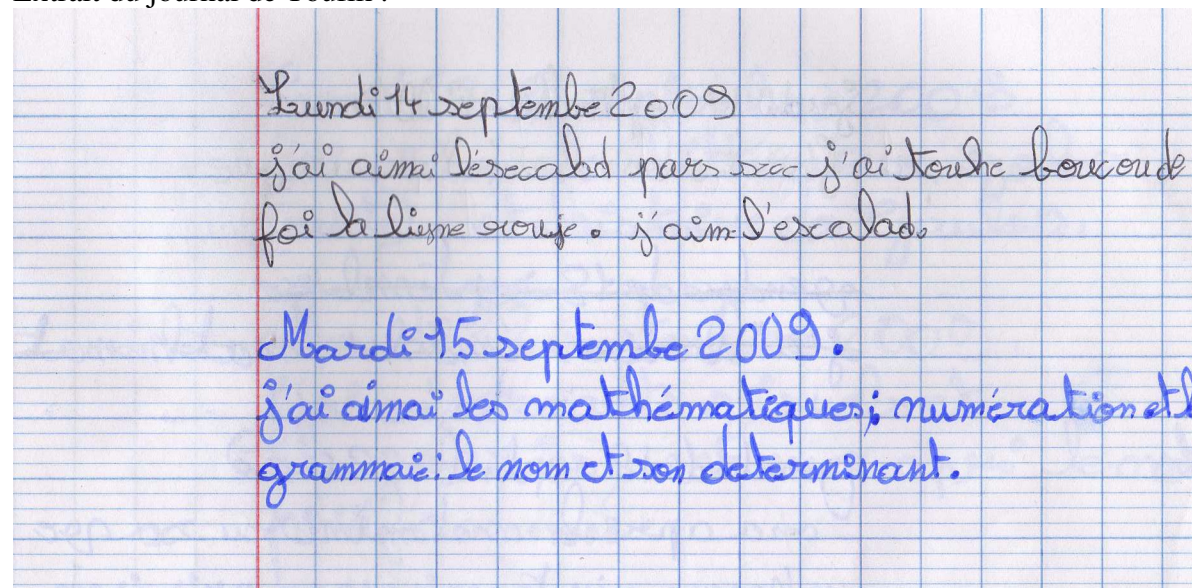 Lundi 14 septembe 2009
j'ai aimai l'ésecalad pars sec j'ai touhe boucoude
foi la ligne rouje. j'aim l'escalad.
Mardi 15 septembe 2009.
j'ai aimai les mathématiques; numération et l
grammaie: le nom et son determinant.